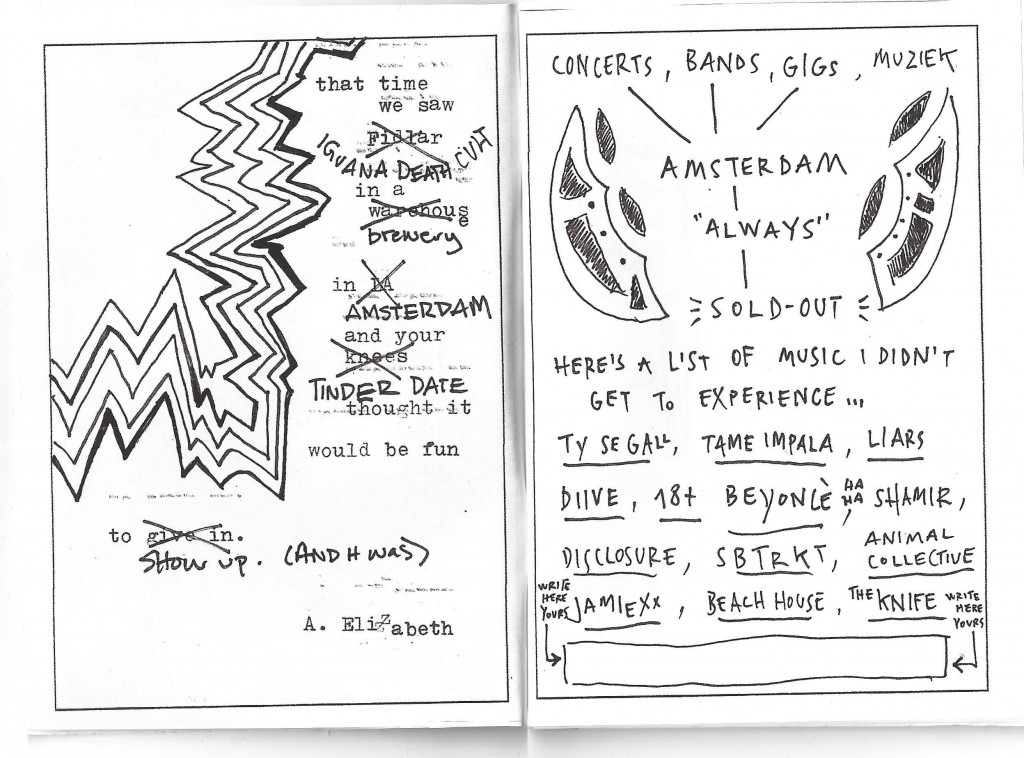 that time
we saw
Fidlar
IGUANA DEATH CULT
in a
warehouse
brewery
in LA
AMSTERDAM
and your
knees
TINDER DATE
thought it
would be fun
to give in.
SHOW up. (AND IT WAS)
A. Elizabeth
CONCERTS, BANDS, GIGS, MUZIEK
AMSTERDAM
"ALWAYS"
SOLD-OUT
HERE'S A LIST OF MUSIC I DIDN'T
GET TO EXPERIENCE...
TY SEGALL, TAME IMPALA, LIARS
DIIVE, 18+ BEYONCÈ, HA HA SHAMIR,
DISCLOSURE, SBTRKT, ANIMAL COLLECTIVE
JAMIEXX, BEACH HOUSE, THE KNIFE
WRITE HERE YOURS
WRITE HERE YOURS